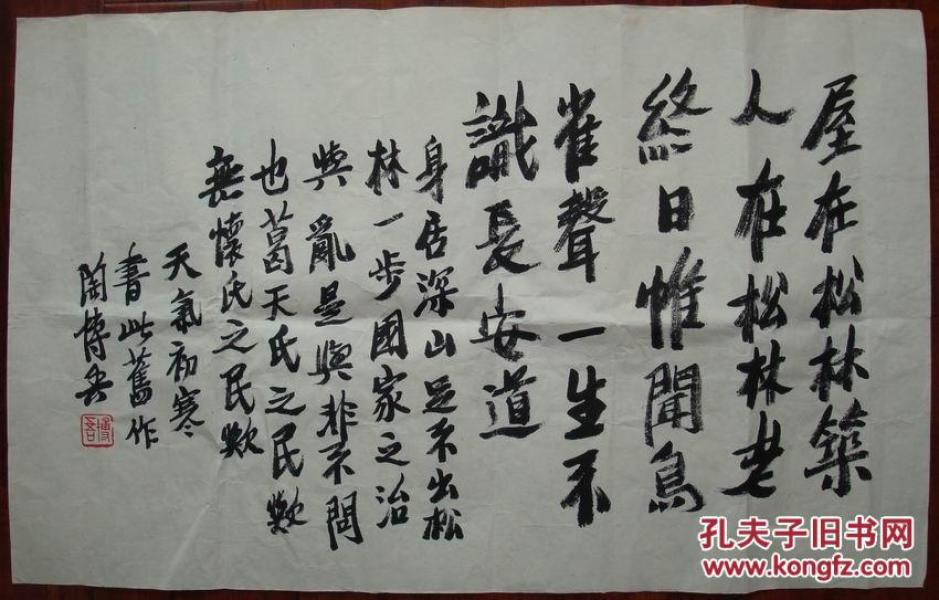 屋在松林築
人在松林老
終日惟聞鳥
雀聲一生不
識長安道
身居深山足不出松
林一步國家之治
與亂是與非不問
也葛天氏之民歟
無懷氏之民歟
天氣初寒
書此舊作
陶博吾
博吾
孔夫子旧书网
www.kongfz.com